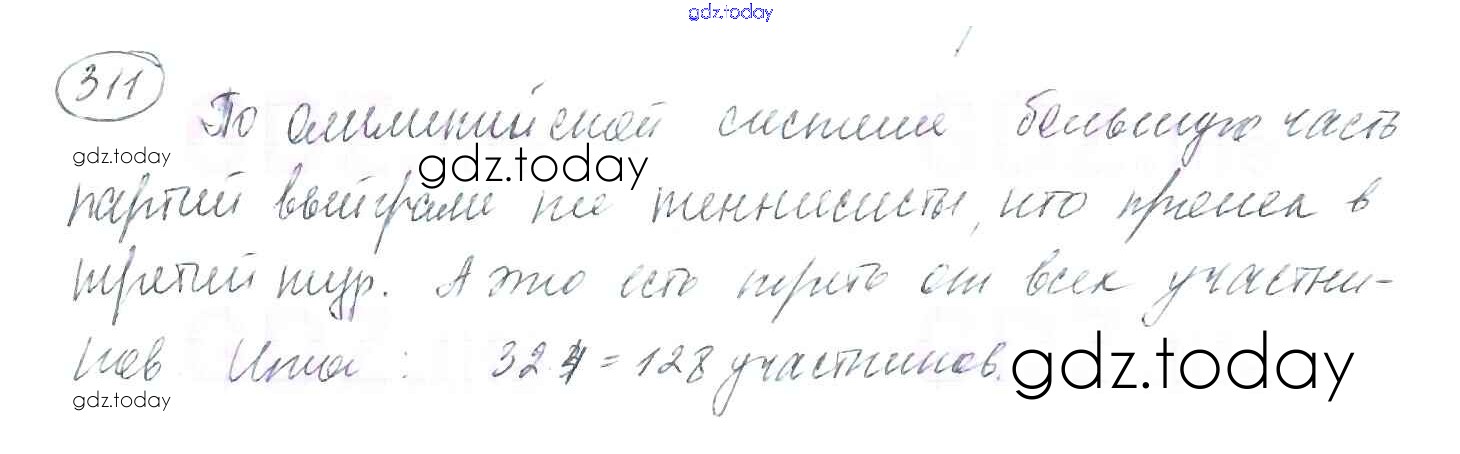 gdz.today
311
По олимпийской системе большую часть
gdz.today
gdz.today
партий выйграли те теннисисты, кто прошел в
третий тур. А это есть треть от всех участни-
ков Итог : 32.4 = 128 участников.
gdz.today
gdz.today